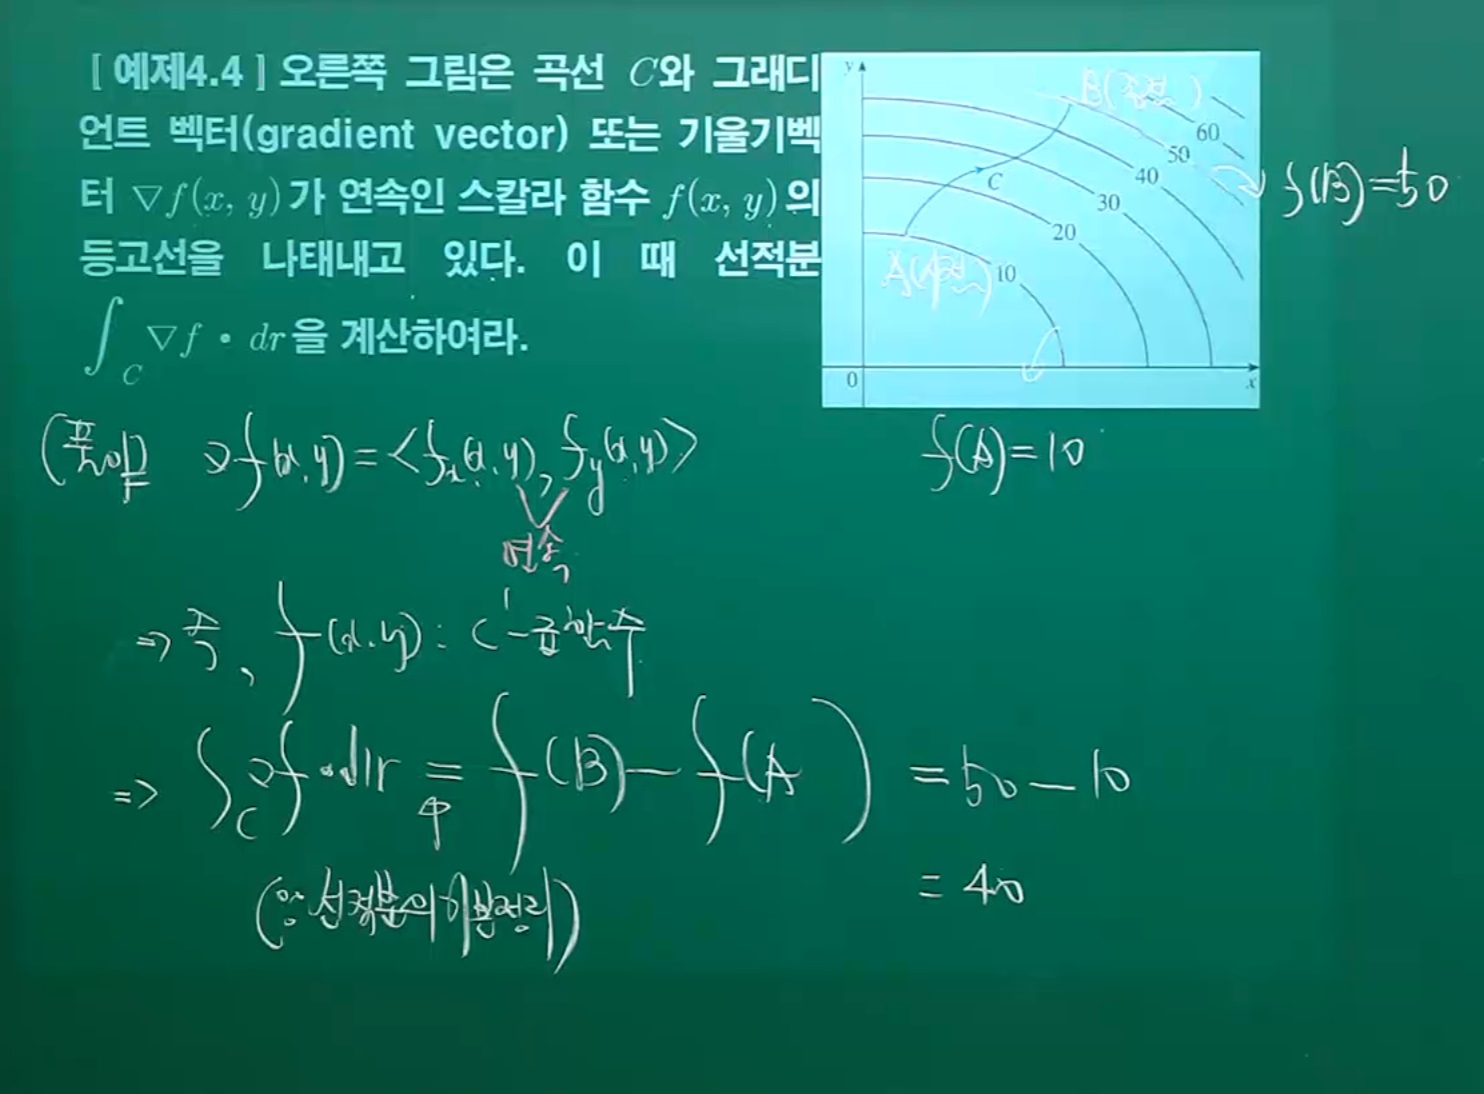 [ 예제4.4 ] 오른쪽 그림은 곡선 C와 그래디
언트 벡터(gradient vector) 또는 기울기벡
터 ▽f(x, y)가 연속인 스칼라 함수 f(x, y)의
등고선을 나태내고 있다. 이 때 선적분
∫_C ▽f • dr을 계산하여라.
y
B(종점)
60
50
40
C
30
20
A(시점)
10
0
x
f(B)=50
f(A)=10
(풀이) ▽f(x,y)=<f_x(x,y), f_y(x,y)>
연속
⇒ 즉, f(x,y): C¹-급함수
⇒ ∫_C ▽f•dr = f(B)-f(A) = 50-10
(∵ 선적분의 기본정리)
= 40